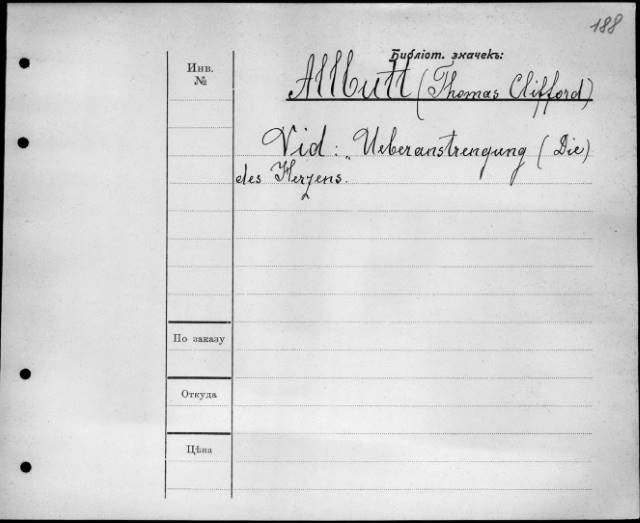 188
Библіот. значекъ:
Инв.
№
Allbutt (Thomas Clifford)
Vid: „Ueberanstrengung (Die)
des Herzens.
По заказу
Откуда
Цѣна